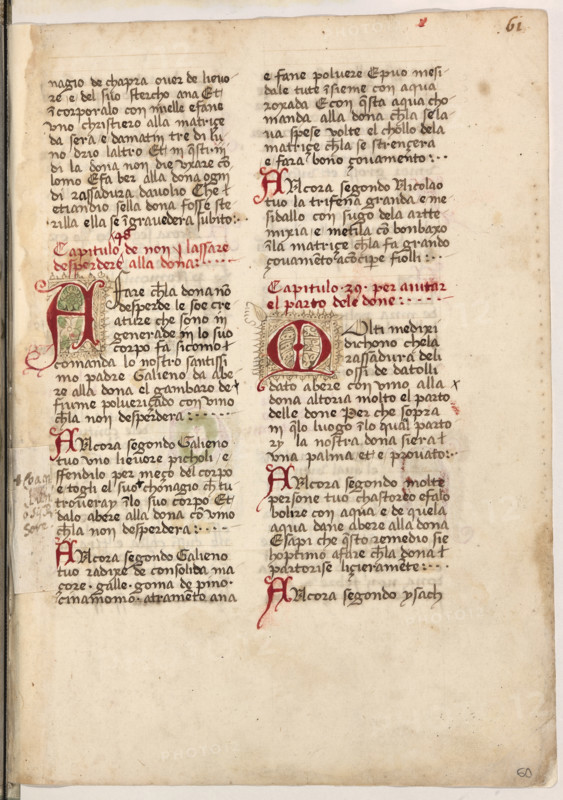 61
nagio de chapra over de lievo
re e del suo stercho ana Et
ĩcorporalo con mielle e fane
vno christiero alla matrize
da sera e damatin tre di lu
no drio laltro Et in q̃sti m̃
di la dona non die vxare cõ
lomo E fa ber alla dona ogni
di rassadura davolio Che l
etiandio sella dona fosse ste
rilla ella se ĩgrauedera subito:
Capitulo 48 de non lassare
desperdere alla dona:
A fare chla dona nõ
desperde le soe cre
ature che sono in
generade in lo suo
corpo fa sicomo l
comanda lo nostro santissi
mo padre Galieno da abe
re alla dona el gambaro de
fiume poluerizado con vino
chla non desperdera:
Ancora segondo Galieno
tuo vno lieuore picholi e
ffendilo per mezo del corpo
e togli el suo chonagio ch tu
troueray ĩ lo suo corpo Et
dalo abere alla dona cõ vino
chla non desperdera:
Ancora segondo Galieno
tuo radixe de consolida ma
çore · galle · goma de pino ·
cinamomo · atramẽto ana
e fane poluere E puo mesi
dale tute ĩsieme con aqua
roxada E con q̃sta aqua cho
manda alla dona chla se la
ua spese volte el chollo dela
matrice chla se strenzera
e fara bono çouamento:
Ancora segondo Nicolao
tuo la trifena granda e me
sidallo con sugo dela artte
mixia e metila cõ bonbaxo
ĩ la matrice chla fa grando
çouamẽto a cõcipe fiolli:
Capitulo · 29 · per aiutar
el parto dele done:
Molti medixi
dichono che la
rassadura deli
ossi de datolli
dato abere con vino alla
dona altoria molto el parto
delle done Per che sopra
in q̃lo luogo ĩ lo qual parto
ry la nostra dona siera l
vna palma et e prouato:
Ancora segondo molte
persone tuo chastoreo e falo
bolire con aqua e de quela
aqua dane abere alla dona
E sapi che q̃sto remedio sie
hoptimo a fare chla dona l
partorise liçieramẽte:
Ancora segondo ysach
60